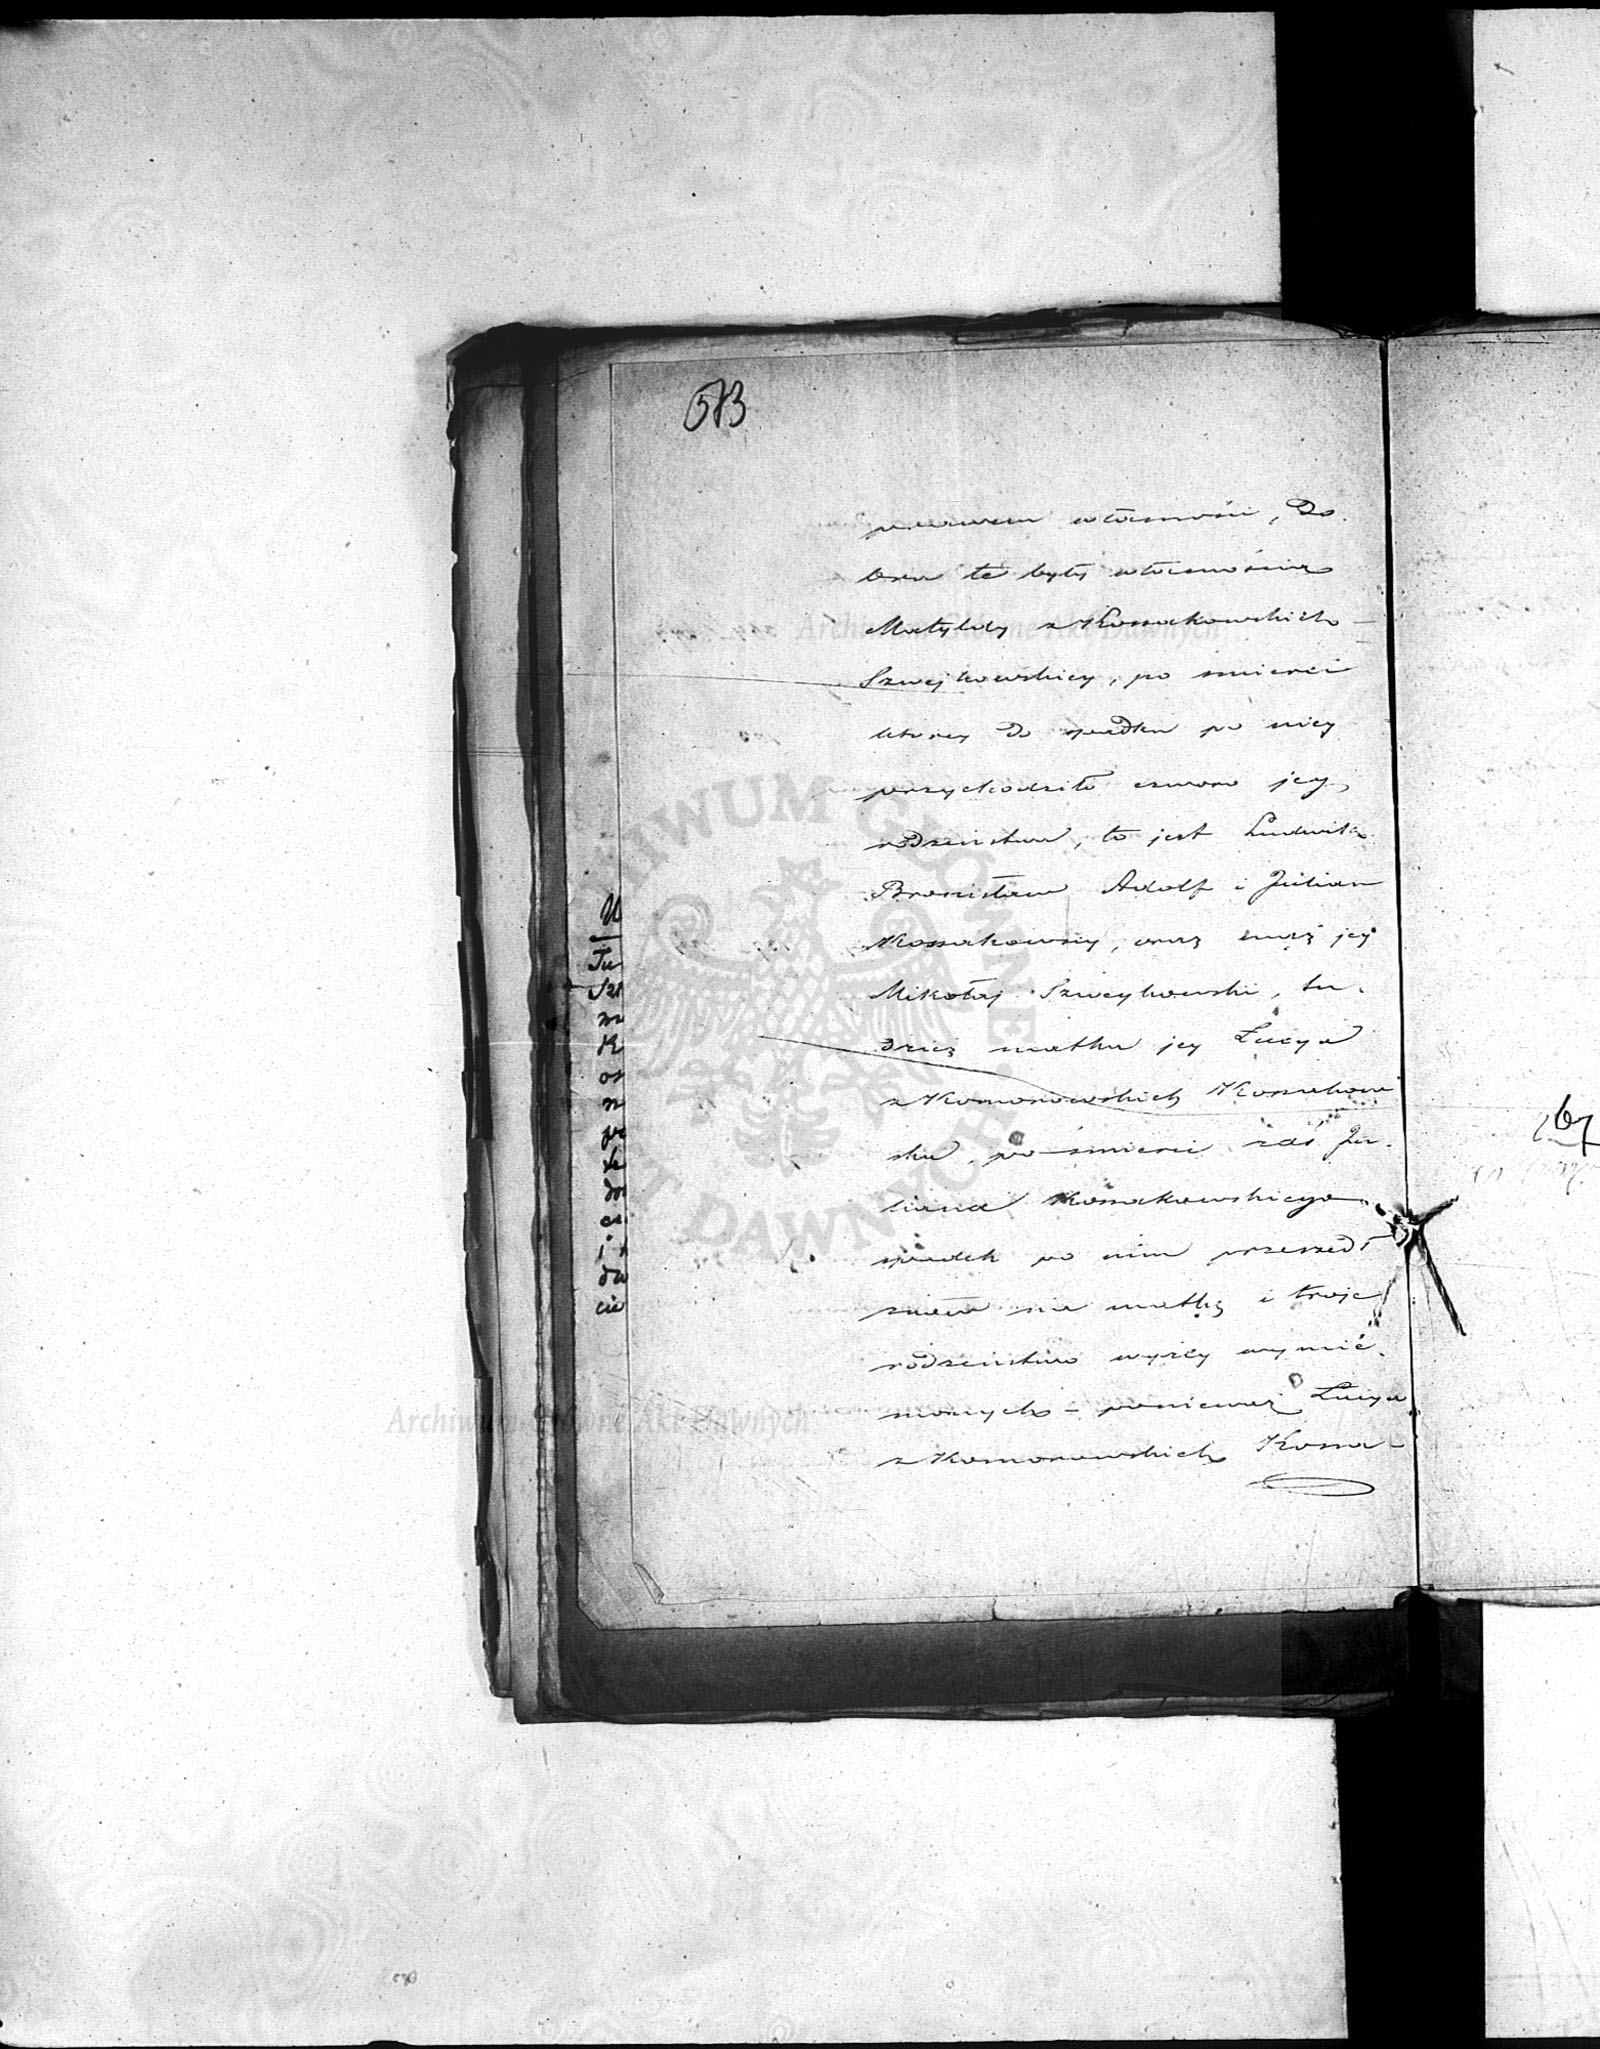 583
prawem własności, Do
bra te były własnością
Matyldy z Kossakowskich
Szwejkowskiey, po śmierci
ktorey do spadku po niey
przychodziło czworo jey
rodzeństwa, to jest Ludwika
Bronisław Adolf i Julian
Kossakowscy, oraz mąż jey
Mikołaj Szweykowski, tu
dzież matka jey Lucya
z Komorowskich Kossakow
ska, po śmierci zaś Ju
liana Kossakowskiego
spadek po nim przeszedł
znów na matkę i troje
rodzeństwa wyżey wymie
nionych – ponieważ Lucya
z Komorowskich Kossa-
U
Tu
Sz
K
cie
ARCHIWUM GŁÓWNE AKT DAWNYCH
Archiwum Główne Akt Dawnych
Archiwum Główne Akt Dawnych